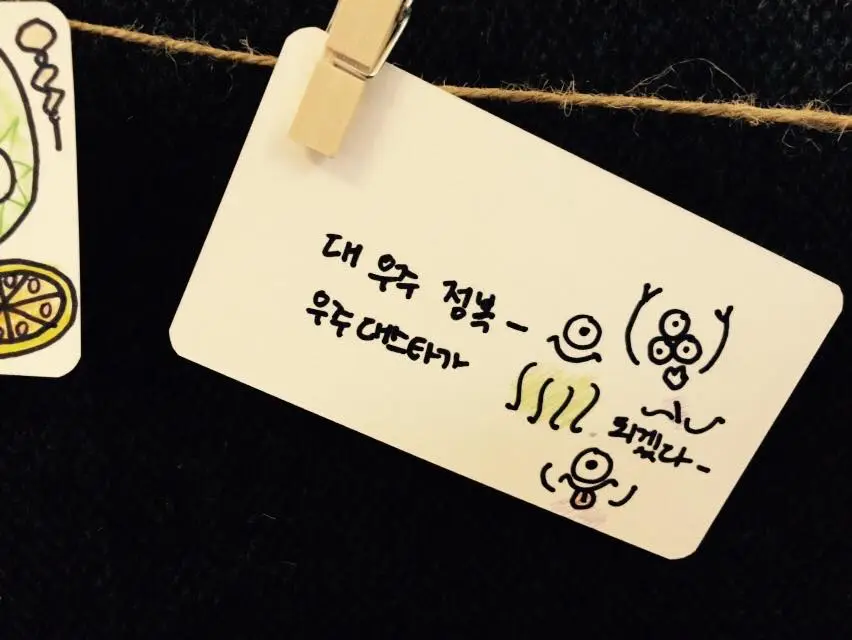 대 우주 정복-
우주대스타가
되겠다-